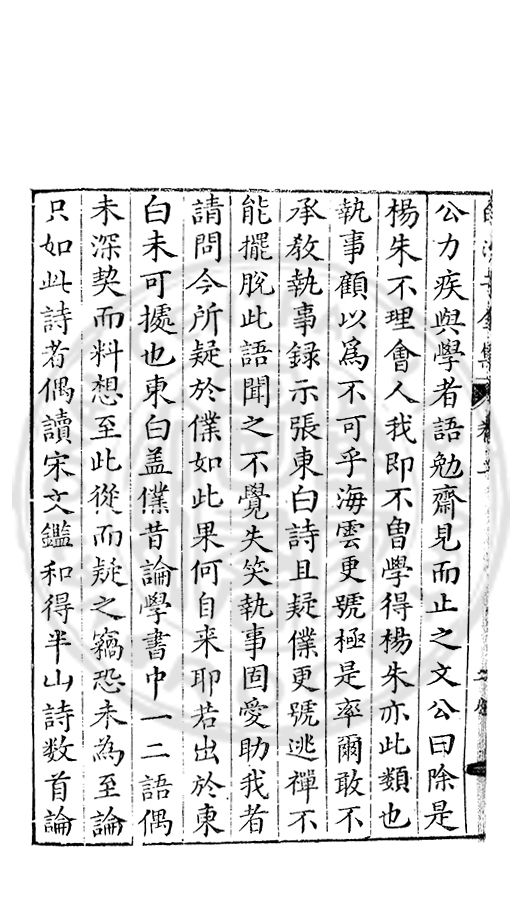 公力疾與學者語勉齋見而止之文公曰除是
楊朱不理會人我即不曾學得楊朱亦此類也
執事顧以爲不可乎海雲更號極是率爾敢不
承教執事録示張東白詩且疑僕更號逃禪不
能擺脫此語聞之不覺失笑執事固愛助我者
請問今所疑於僕如此果何自来耶若出於東
白未可據也東白盖僕昔論學書中一二語偶
未深契而料想至此從而疑之竊恐未為至論
只如此詩若偶讀宋文鑑和得半山詩数首論